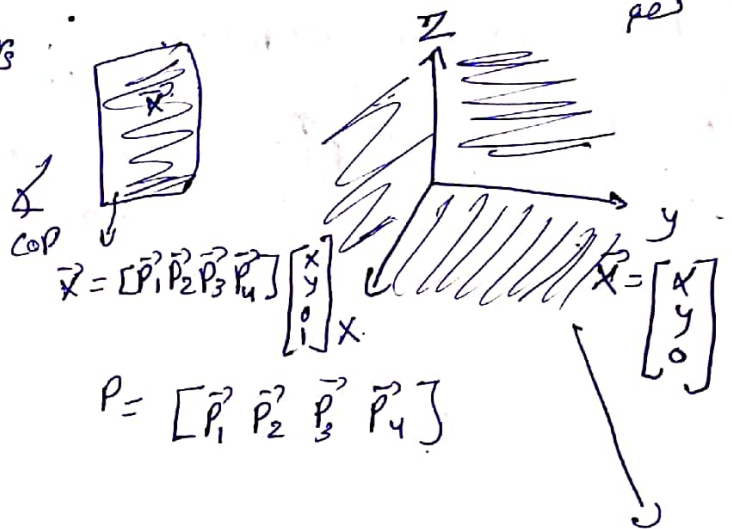 Z
x⃗
COP
y
x⃗ = [p⃗₁ p⃗₂ p⃗₃ p⃗₄] [x y 0 1]
X
x⃗ = [x y 0]
P = [p⃗₁ p⃗₂ p⃗₃ p⃗₄]